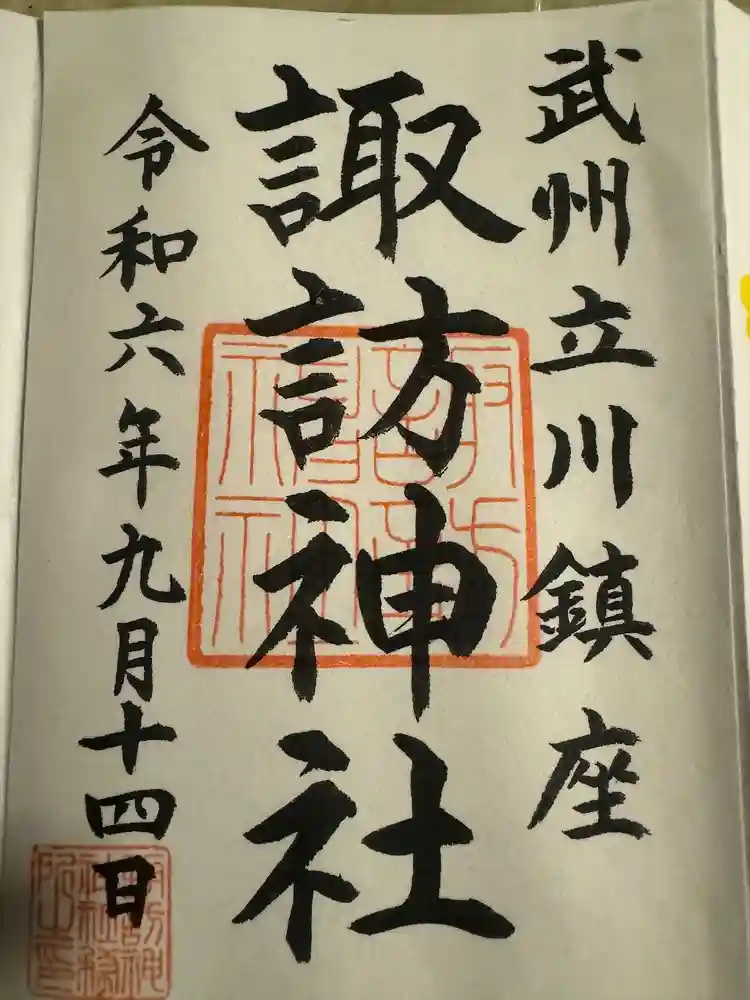 武州立川鎮座
諏訪神社
令和六年九月十四日
諏訪
神社